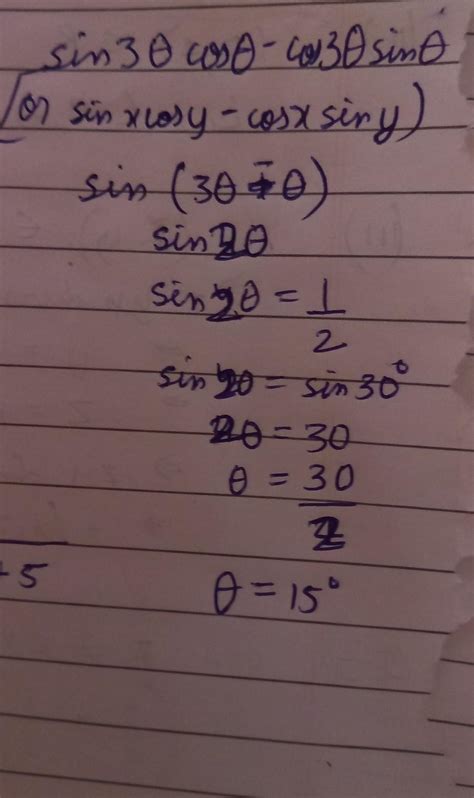 sin3θ cosθ - cos3θ sinθ
[or sin x cos y - cos x sin y)
sin (3θ - θ)
sin2θ
sin2θ = 1/2
sin2θ = sin30°
2θ = 30
θ = 30/2
+5
θ = 15°